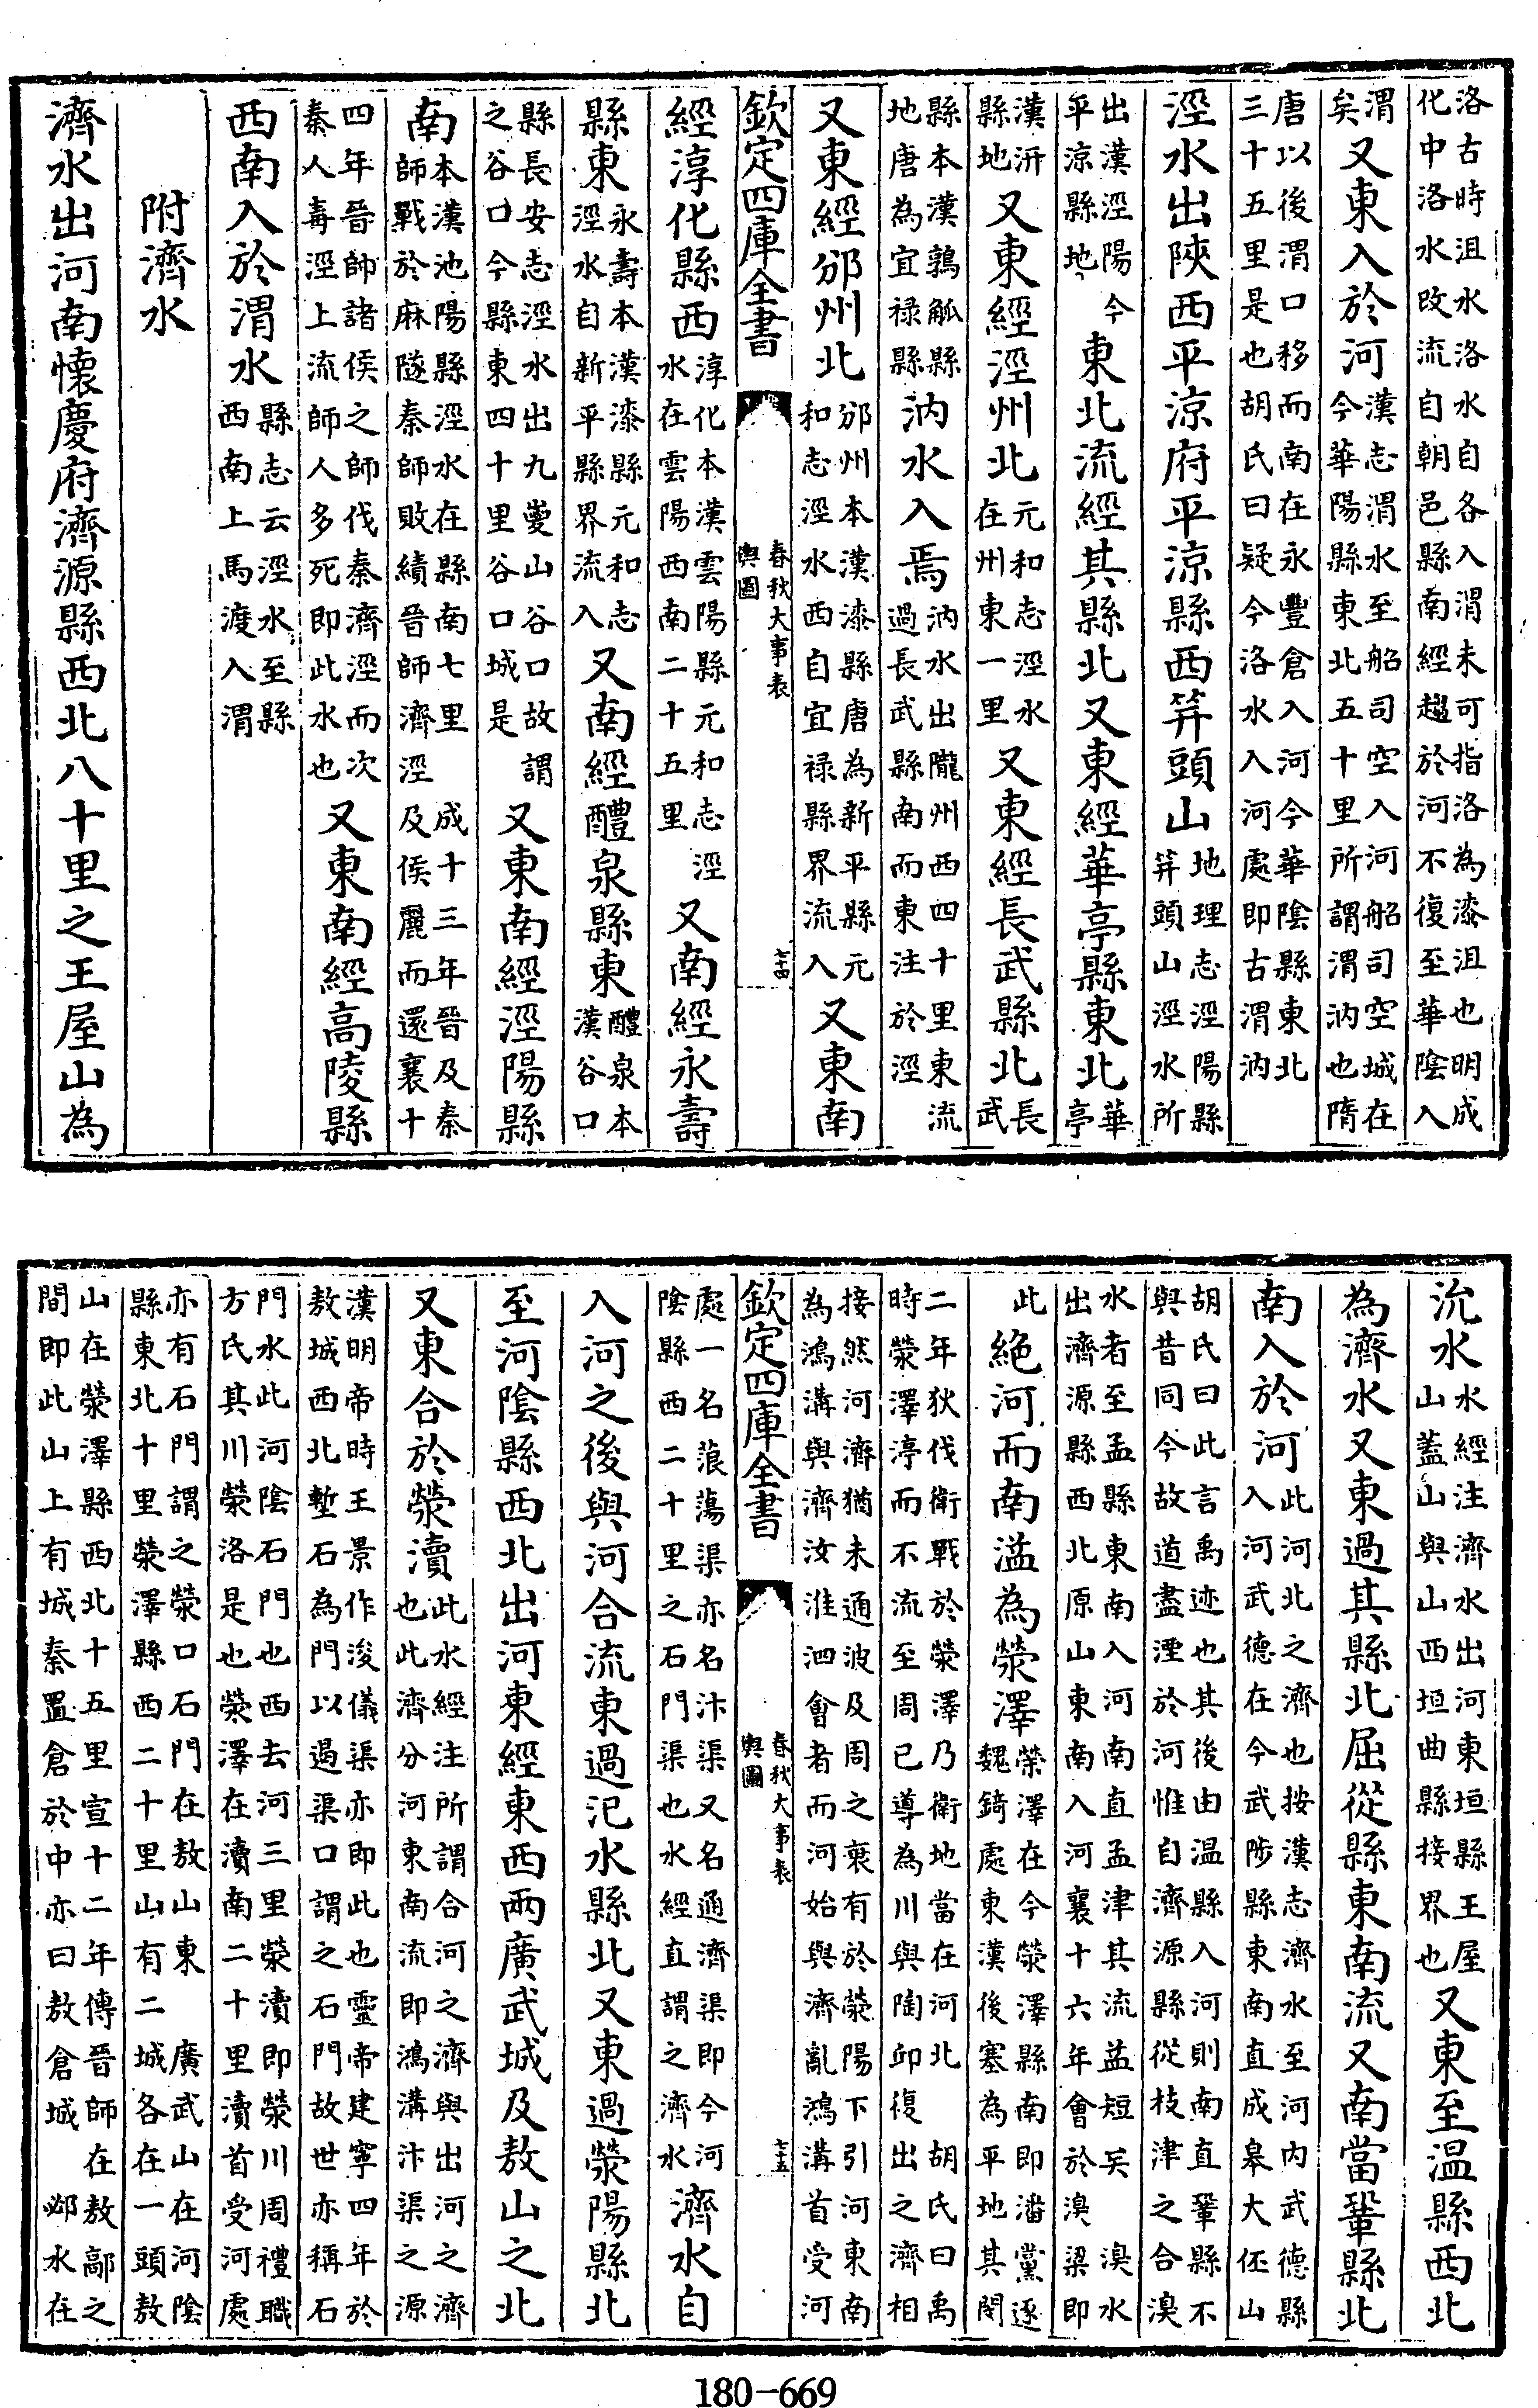 洛古時沮水洛水自各入渭未可指洛為漆沮也明成
化中洛水改流自朝邑縣南經趨於河不復至華陰入
渭矣又東入於河漢志渭水至船司空入河船司空城在
今華陽縣東北五十里所謂渭汭也隋
唐以後渭口移而南在永豐倉入河今華陰縣東北
三十五里是也胡氏曰疑今洛水入河處即古渭汭
涇水出陝西平涼府平涼縣西笄頭山地理志涇陽縣
笄頭山涇水所
出漢涇陽今平涼縣地東北流經其縣北又東經華亭縣東北華亭
漢汧縣地又東經涇州北元和志涇水在州東一里又東經長武縣北長武
縣本漢鶉觚縣地唐為宜祿縣汭水入焉汭水出隴州西四十里東流
過長武縣南而東注於涇
又東經邠州北邠州本漢漆縣唐為新平縣元
和志涇水西自宜祿縣界流入又東南
欽定四庫全書 春秋大事表 輿圖 七十四
經淳化縣西淳化本漢雲陽縣元和志涇
水在雲陽西南二十五里又南經永壽
縣東永壽本漢漆縣元和志
涇水自新平縣界流入又南經醴泉縣東醴泉本漢谷口
縣長安志涇水出九嵕山谷口故謂
之谷口今縣東四十里谷口城是又東南經涇陽縣
南本漢池陽縣涇水在縣南七里成十三年晉及秦
師戰於麻隧秦師敗績晉師濟涇及侯麗而還襄十
四年晉帥諸侯之師伐秦濟涇而次
秦人毒涇上流師人多死即此水也又東南經高陵縣
西南入於渭水縣志云涇水至縣
西南上馬渡入渭
附濟水
濟水出河南懷慶府濟源縣西北八十里之王屋山為
流水水經注濟水出河東垣縣王屋
山蓋山與山西垣曲縣接界也又東至温縣西北
為濟水又東過其縣北屈從縣東南流又南當鞏縣北
南入於河此河北之濟也按漢志濟水至河内武德縣
入河武德在今武陟縣東南直成皋大伾山
胡氏曰此言禹迹也其後由温縣入河則南直鞏縣不
與昔同今故道盡湮於河惟自濟源縣從枝津之合溴
水者至孟縣東南入河南直孟津其流益短矣溴水
出濟源縣西北原山東南入河襄十六年會於溴梁即
此絶河而南溢為滎澤滎澤在今滎澤縣南即潘黨逐
魏錡處東漢後塞為平地其閔
二年狄伐衛戰於滎澤乃衛地當在河北胡氏曰禹
時滎澤渟而不流至周已導為川與陶邱復出之濟相
接然河濟猶未通波及周之衰有於滎陽下引河東南
為鴻溝與濟汝淮泗會者而河始與濟亂鴻溝首受河
欽定四庫全書 春秋大事表 輿圖 七十五
處一名蒗蕩渠亦名汴渠又名通濟渠即今河
陰縣西二十里之石門渠也水經直謂之濟水濟水自
入河之後與河合流東過汜水縣北又東過滎陽縣北
至河陰縣西北出河東經東西兩廣武城及敖山之北
又東合於滎瀆此水經注所謂合河之濟與出河之濟
也此濟分河東南流即鴻溝汴渠之源
漢明帝時王景作浚儀渠亦即此也靈帝建寧四年於
敖城西北塹石為門以遏渠口謂之石門故世亦稱石
門水此河陰石門也西去河三里滎瀆即滎川周禮職
方氏其川滎洛是也滎澤在瀆南二十里瀆首受河處
亦有石門謂之滎口石門在敖山東廣武山在河陰
縣東北十里滎澤縣西二十里山有二城各在一頭敖
山在滎澤縣西北十五里宣十二年傳晉師在敖鄗之
間即此山上有城秦置倉於中亦曰敖倉城邲水在
180-669